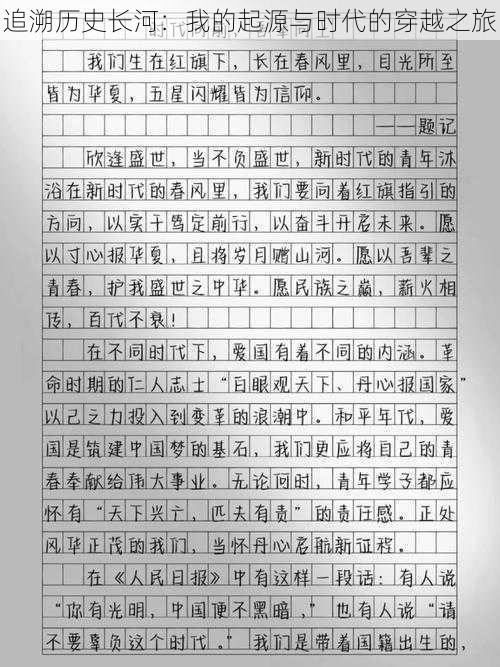 追溯历史长河：我的起源与时代的穿越之旅
我们生在红旗下，长在春风里，目光所至
皆为华夏，五星闪耀皆为信仰。
——题记
欣逢盛世，当不负盛世，新时代的青年沐
浴在新时代的春风里，我们要向着红旗指引的
方向，以实干笃定前行，以奋斗开启未来。愿
以寸心报华夏，且将岁月赠山河。愿以吾辈之
青春，护我盛世之中华。愿民族之巅，薪火相
传，百代不衰！
在不同时代下，爱国有着不同的内涵。革
命时期的仁人志士“白眼观天下、丹心报国家”
以己之力投入到变革的浪潮中。和平年代，爱
国是筑建中国梦的基石，我们更应将自己的青
春奉献给伟大事业。无论何时，青年学子都应
怀有“天下兴亡，匹夫有责”的责任感。正处
风华正茂的我们，当怀丹心启航新征程。
在《人民日报》中有这样一段话：有人说
“你有光明，中国便不黑暗，”也有人说“请
不要辜负这个时代。”我们是带着国籍出生的，